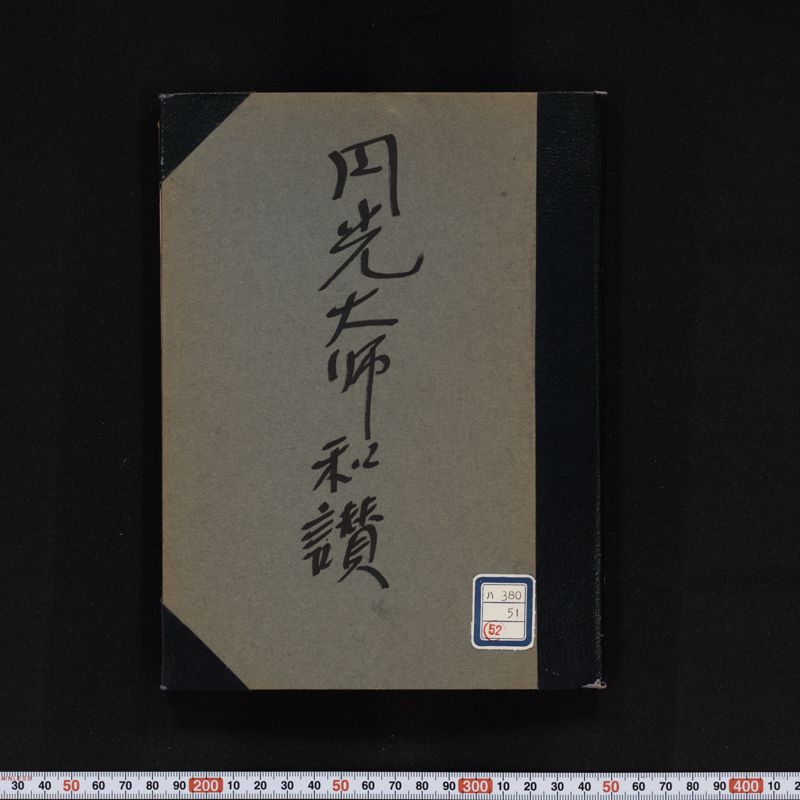 円光大师和讃
ハ 380
51
52
STAINLESS
30 40 50 60 70 80 90 200 10 20 30 40 50 60 70 80 90 300 10 20 30 40 50 60 70 80 90 400 10 2